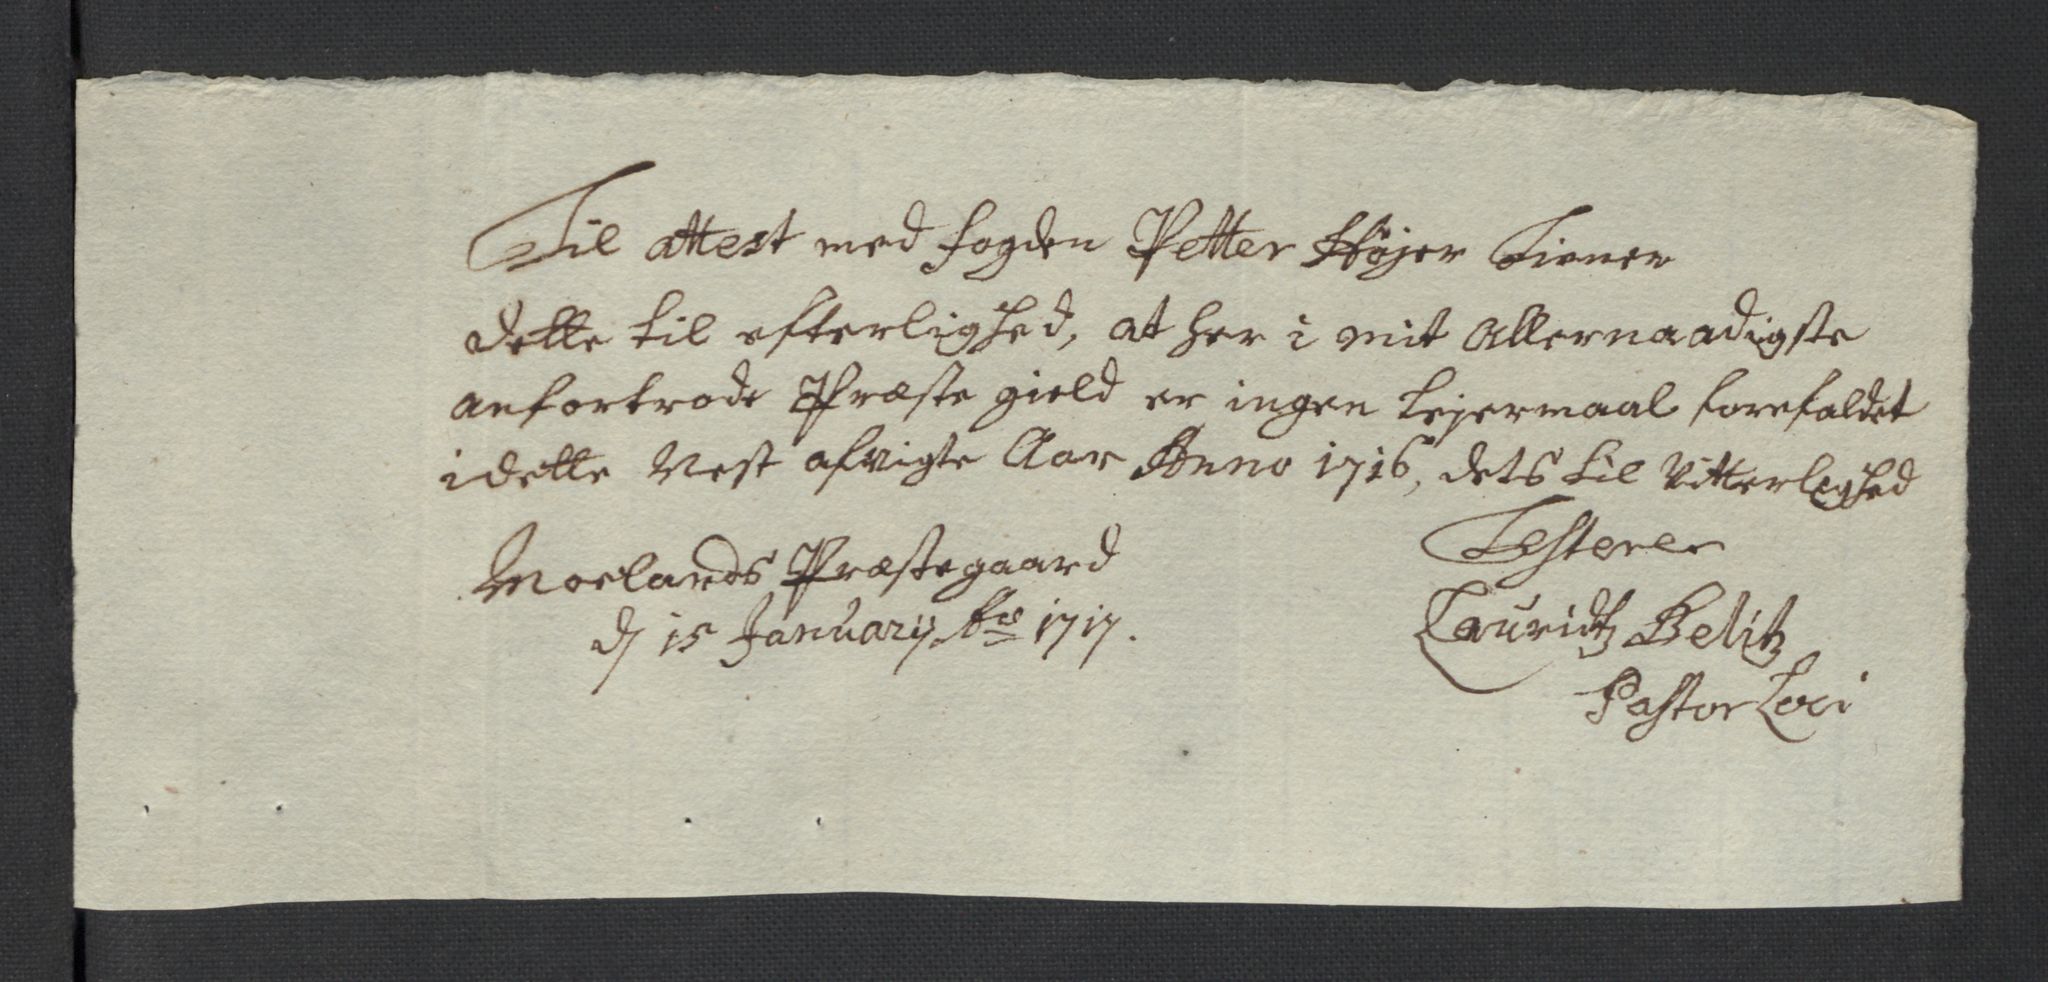 Til attest med fogden Petter Høyer Tiener
dette til efterlighed, at her i mit Allernaadigste
anfortrode Præste gield er ingen Lejermaal forefaldet
i dette Nest afvigte Aar Anno 1716, dets til Vitterlighed
Testerer
Moelands Præstegaard
d 15 Januarij Ao 1717.
Lauridtz Belitz
Pastor Loci